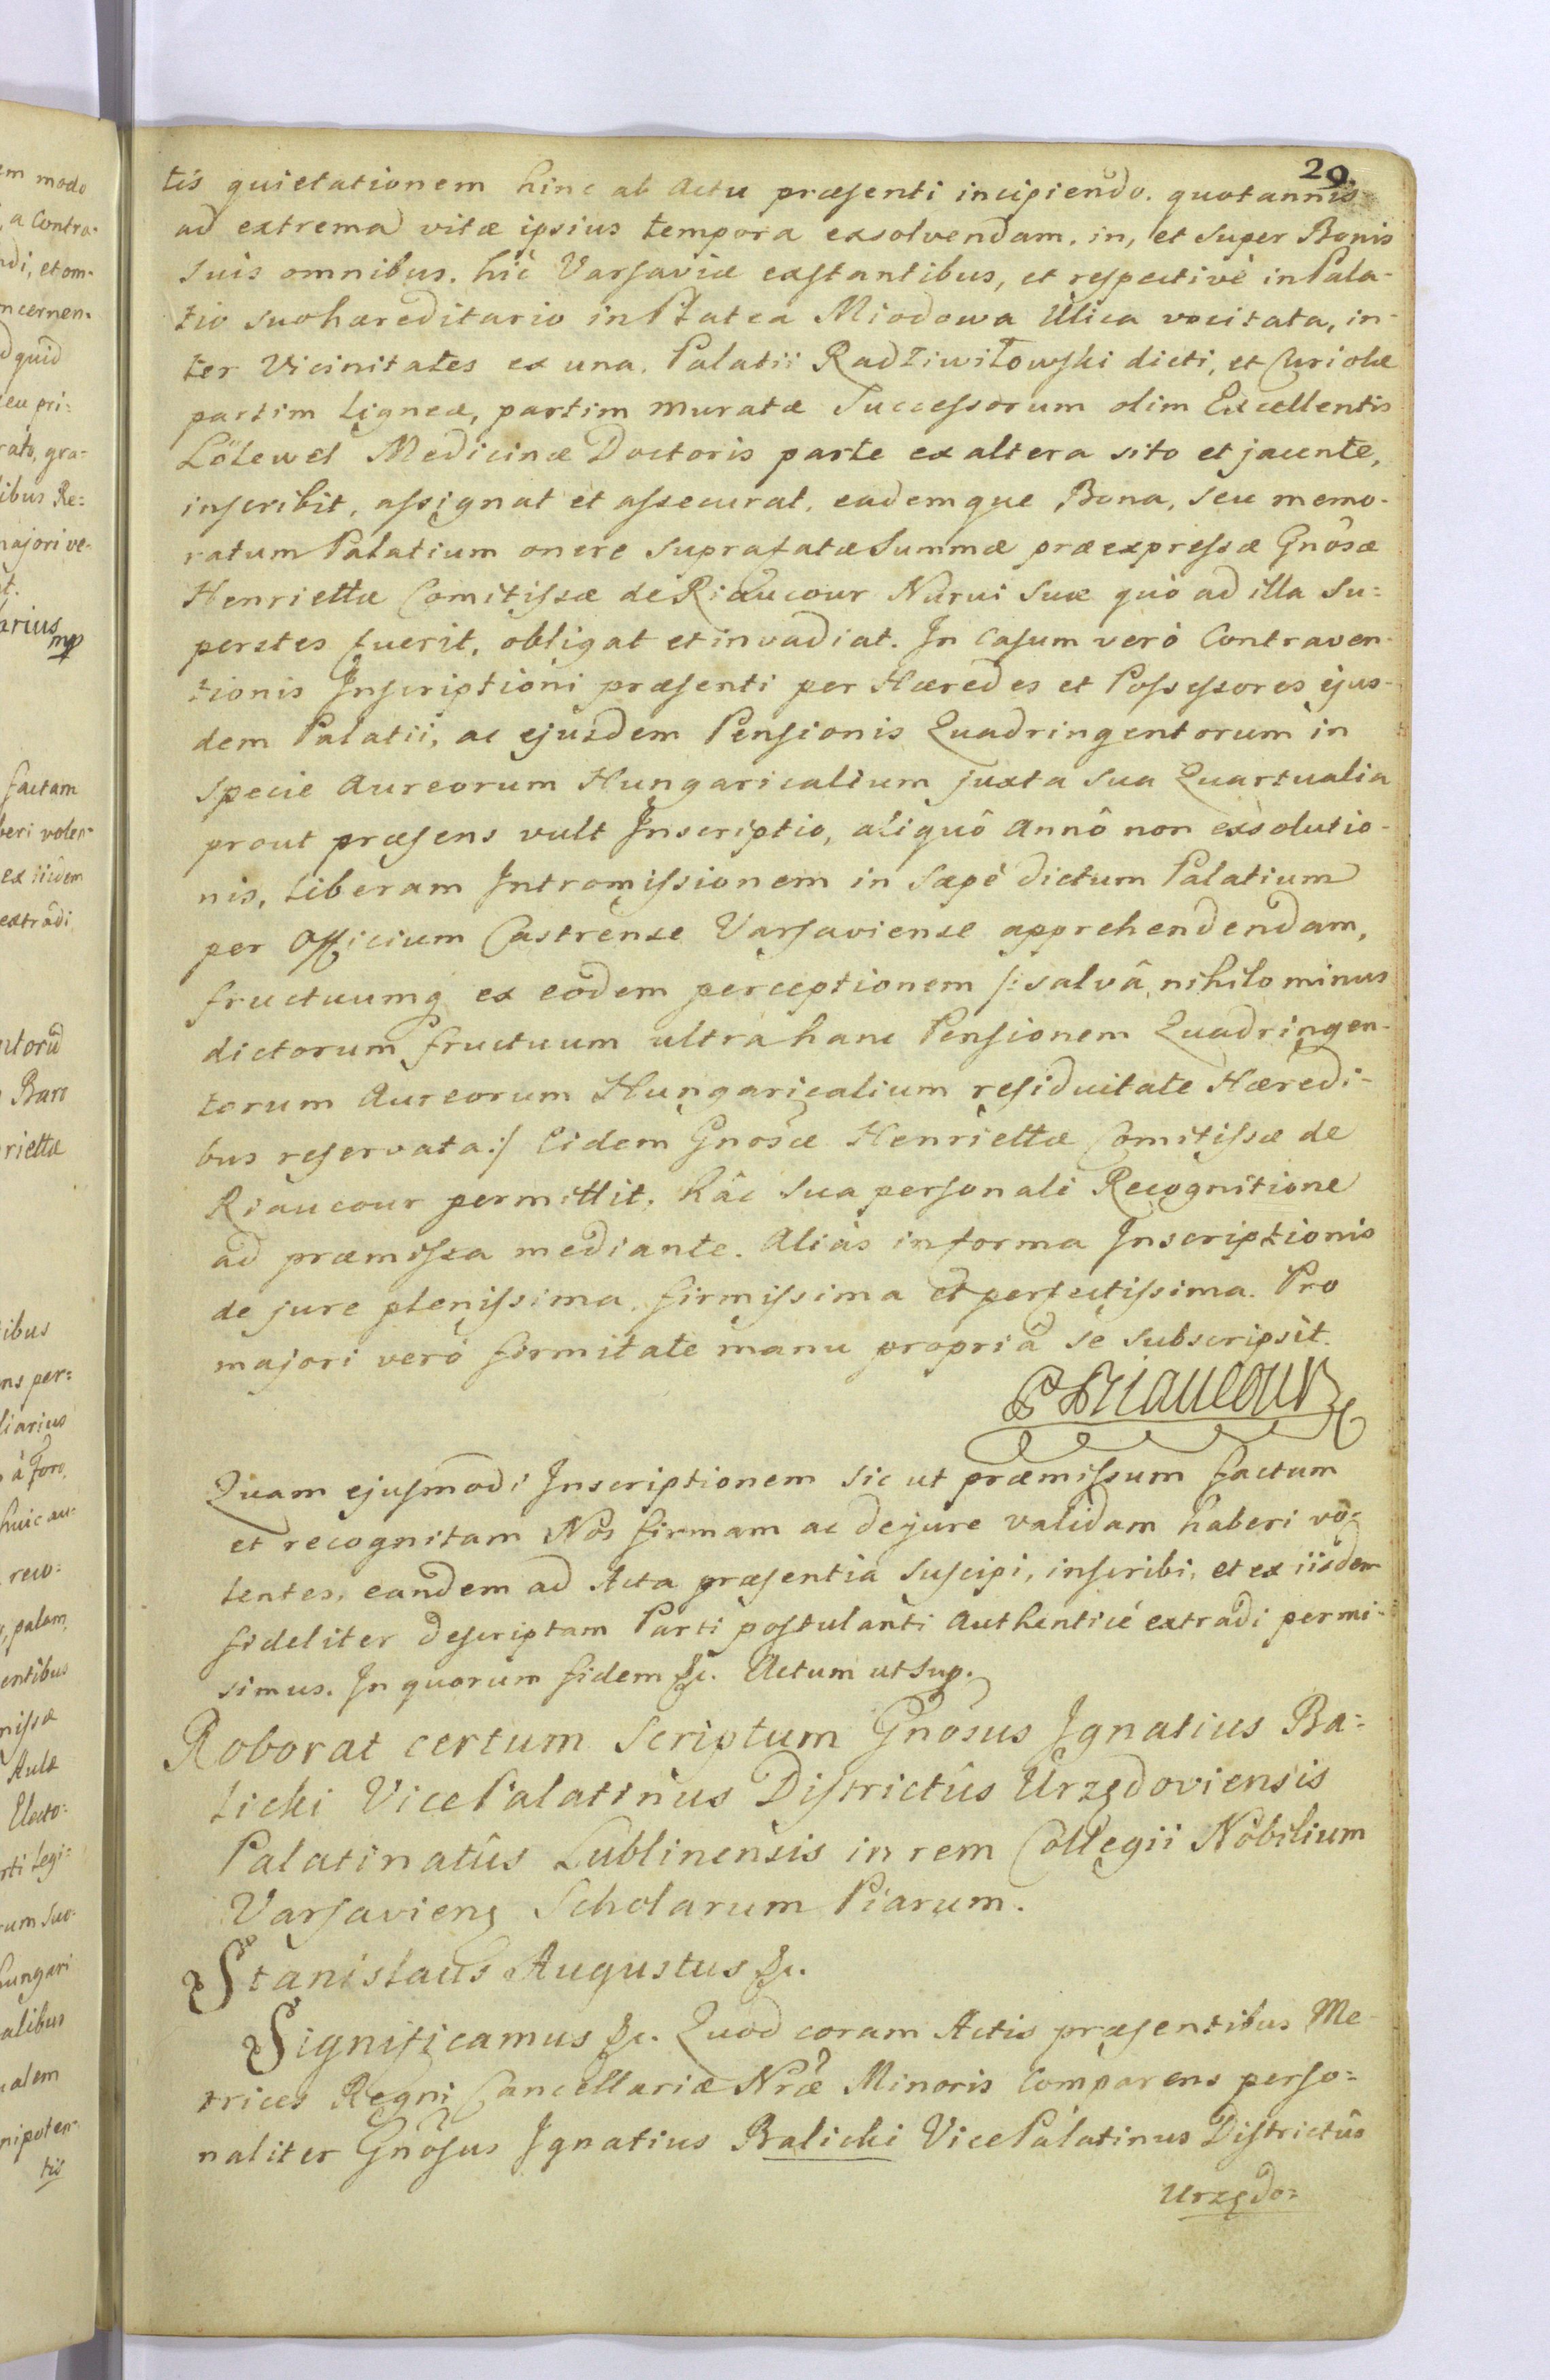 29.
tis quietationem hinc ab Actu præsenti incipiendo. quotannis
ad extrema vitæ ipsius tempora exsolvendam, in, et super Bonis
Suis omnibus, hic Varsaviæ exstantibus, et respectivè in Pala-
tio suo hæreditario in Platea Miodowa Ulica vocitata, in-
ter Vicinitates ex una, Palatii Radziwiłowski dicti, et Curiolæ
partim Ligneæ, partim muratæ Successorum olim Excellentis
Lölewel Medicinæ Doctoris parte ex altera sito et jacente,
inscribit, assignat et assecurat, eademque Bona, seu memo-
ratum Palatium onere suprafatæ Summæ præexpressæ Gnôsæ
Henriettæ Comitissæ de Riaucour Nurui Suæ quò ad illa Su=
perstes fuerit, obligat et invadiat. In Casum verò Contraven-
tionis Inscriptioni præsenti per Hæredes et Possessores ejus-
dem Palatii, ac ejusdem Pensionis Quadringentorum in
Specie Aureorum Hungaricalium juxta sua Quartualia
prout præsens vult Inscriptio, aliquô Annô non exsolutio-
nis, Liberam Intromissionem in Sæpè dictum Palatium
per Officium Castrense Varsaviense apprehendendam,
fructuumq ex eodem perceptionem /: salvâ nihilominus
dictorum fructuum ultra hanc Pensionem Quadringen-
torum Aureorum Hungaricalium residuitate Hæredi-
bus reservata :/ Eidem Gnosæ Henriettæ Comitissæ de
Riaucour permittit, hâc sua personali Recognitione
ad præmissa mediante. Aliàs in forma Inscriptionis
de jure plenissima, firmissima et perfectissima. Pro
majori verò firmitate manu propriâ se subscripsit.
Riaucour
Quam ejusmodi Inscriptionem sic ut præmissum factum
et recognitam Nos firmam ac de jure validam haberi vo=
lentes, eandem ad Acta præsentia suscipi, inscribi, et ex iisdem
fideliter descriptam Parti postulanti Authenticè extradi permi-
simus. In quorum fidem &c. Actum ut Sup.
Roborat certum Scriptum Gnôsus Ignatius Ba=
licki VicePalatinus Districtûs Urzędoviensis
Palatinatûs Lublinensis in rem Collegii Nobilium
Varsaviens Scholarum Piarum.
Stanislaus Augustus &c.
Significamus &c. Quod coram Actis præsentibus Me-
trices Regni Cancellariæ Nræ Minoris Comparens perso=
naliter Gnôsus Ignatius Balicki VicePalatinus Districtûs
Urzędo=